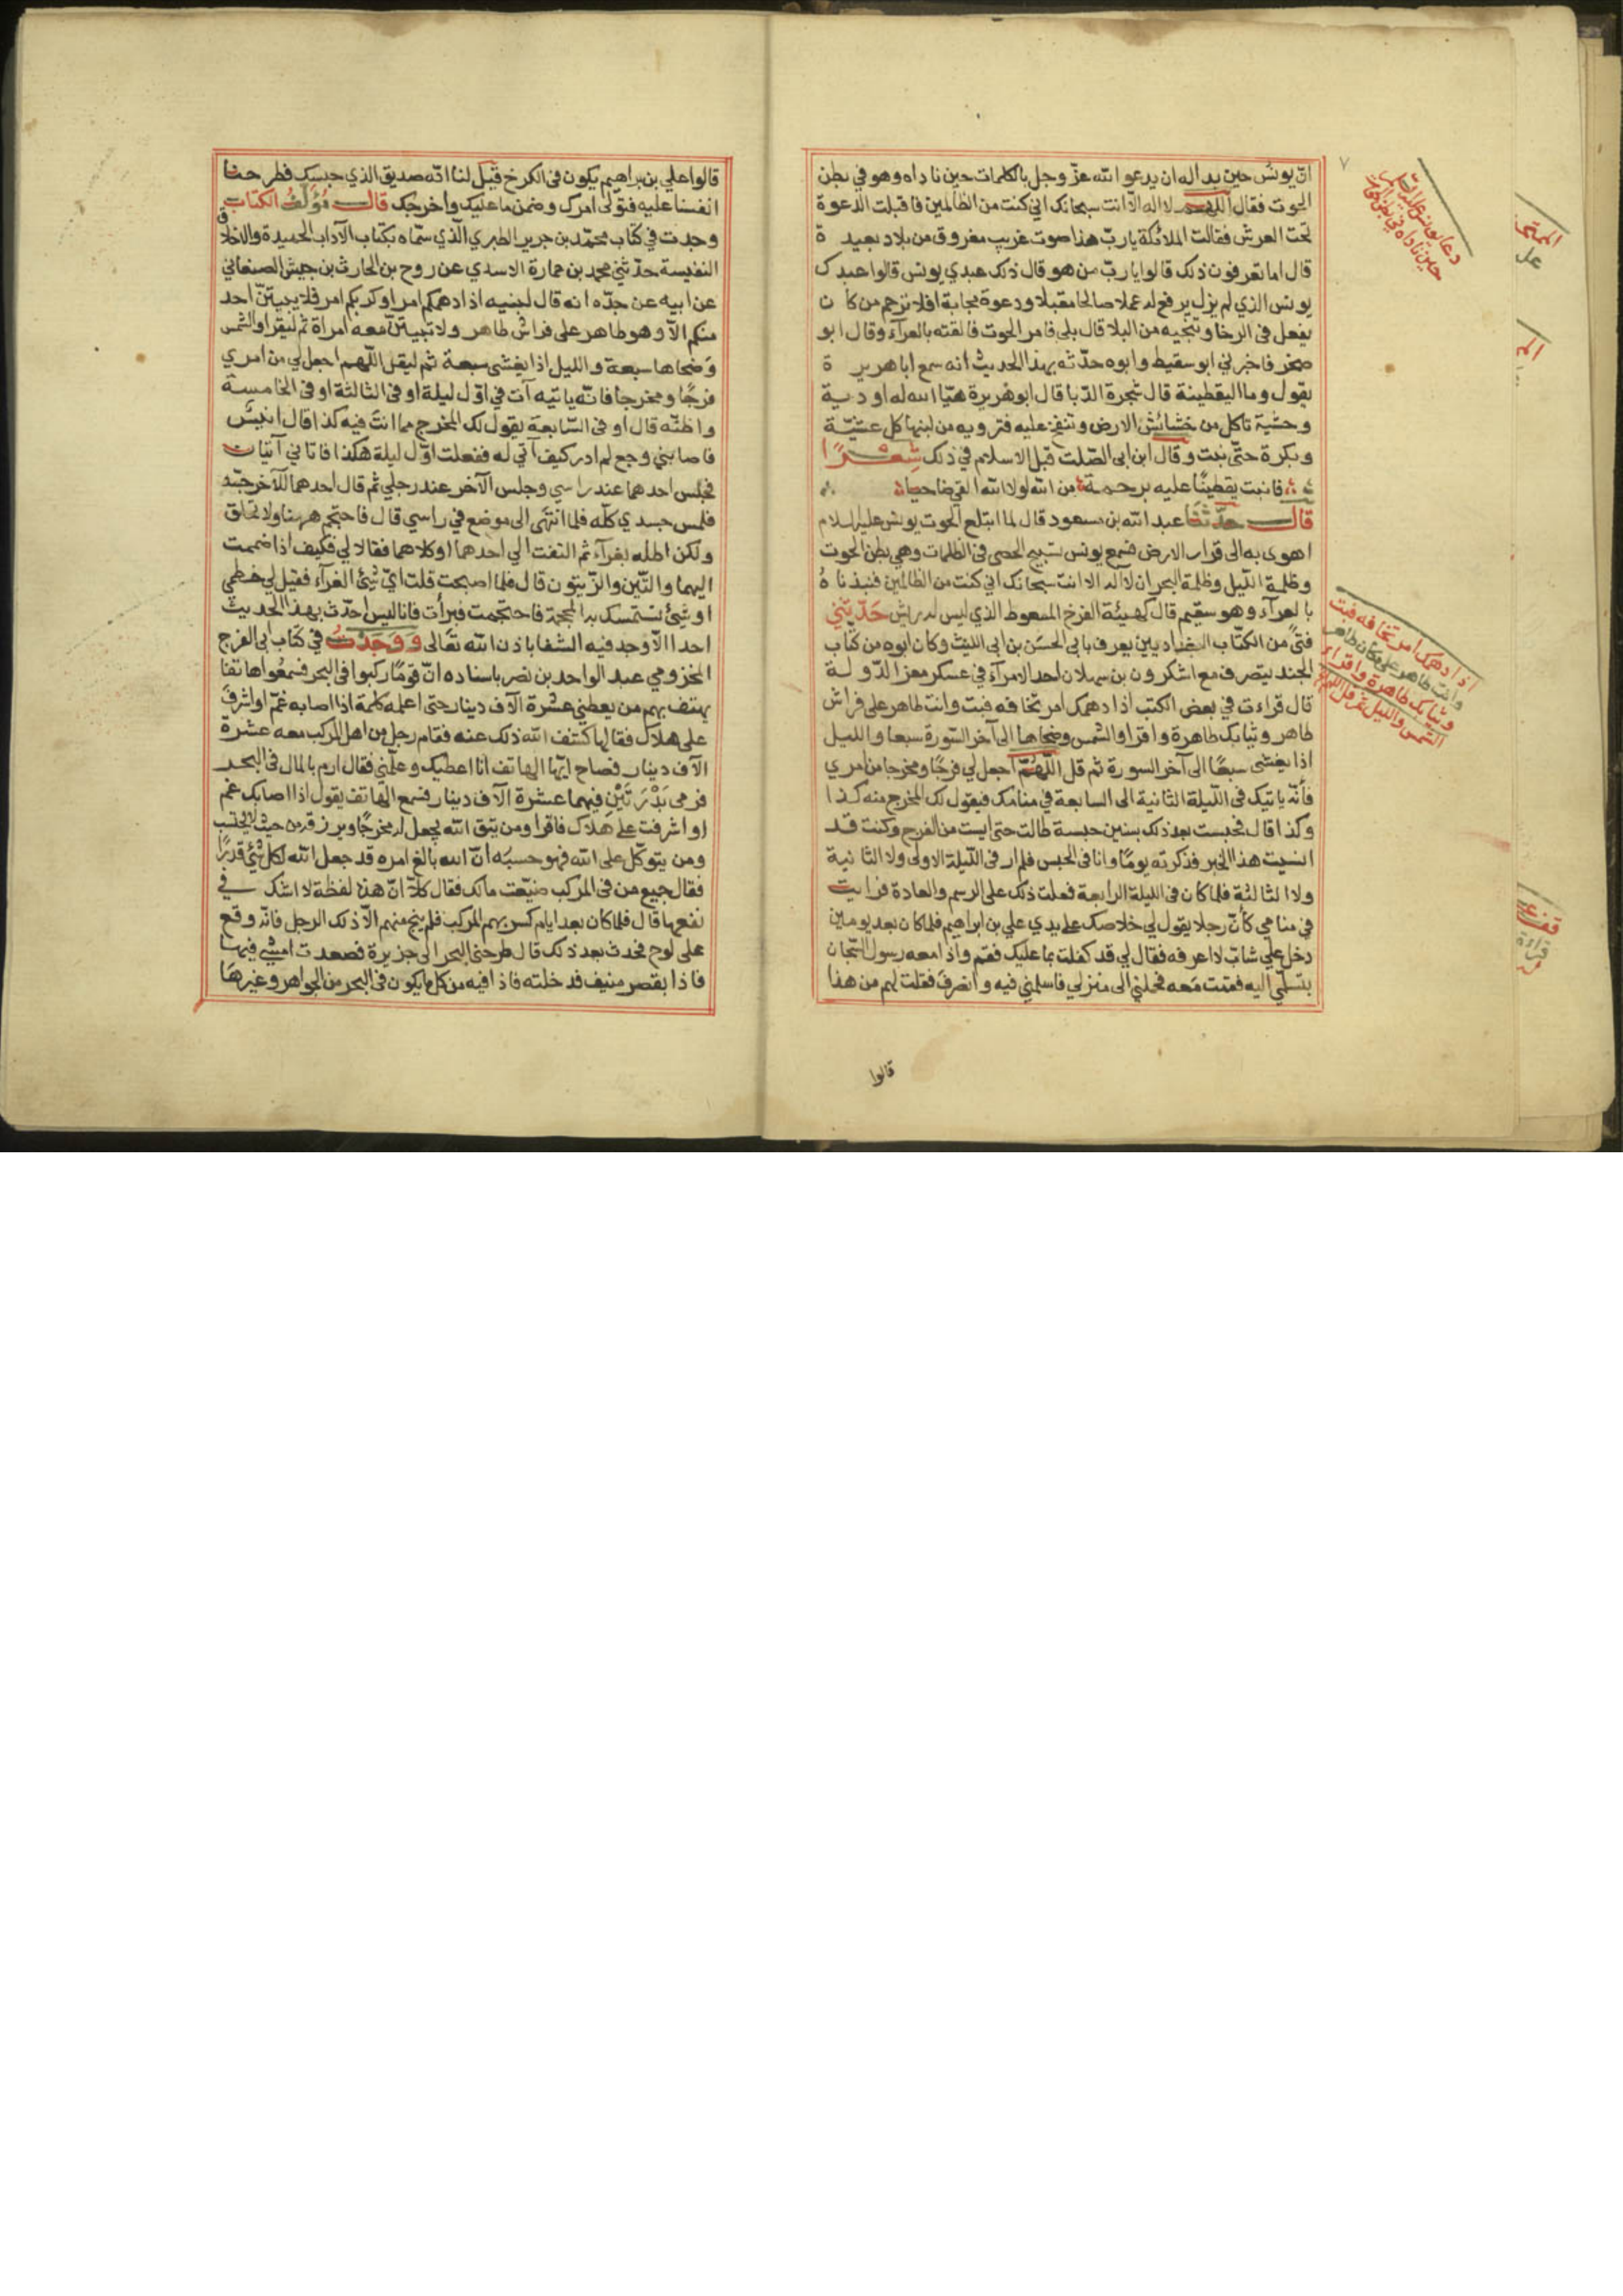 ان يونس حين بدا له ان يدعو الله عز وجل بالكلمات حين ناداه وهو في بطن
الحوت فقال اللهم لا اله الا انت سبحانك اني كنت من الظالمين فاقبلت الدعوة
تحت العرش فقالت الملائكة يا رب هذا صوت غريب معروق من بلاد بعيد ة
قال اما تعرفون ذلك قالوا يا رب من هو قال ذلك عبدي يونس قالوا عبدك
يونس الذي لم يزل يرفع له عملا صالحا متقبلا ودعوة مجابة افلا ترحم من كا ن
يفعل في الرخا وتنجيه من البلا قال بلى فامر الحوت فالقته بالعرآء وقال ابو
صخر فاخبرني ابو سقيط وابوه حدثه بهذا الحديث انه سمع ابا هرير ة
يقول وما اليقطينة قال شجرة الدبا قال ابو هريرة هيا الله له اودية
وحشية تاكل من خشائش الارض وتتفخ عليه فترويه من لبنها كل عشية
وبكرة حتى نبت وقال ابن ابى الصلت قبل الاسلام في ذلك شعرًا
فانبت يقطينًا عليه برحمة من الله لولا الله القي ضاحيا
قال حدثنا عبد الله بن مسعود قال لما ابتلع الحوت يونس عليه السلام
اهوى به الى قرار الارض فسمع يونس تسبيح الحصى فى الظلمات وهي بطن الحوت
وظلمة الليل وظلمة البحر ان لا اله الا انت سبحانك اني كنت من الظالمين فنبذناه
بالعرآء وهو سقيم قال كهيئة الفرخ الممعوط الذي ليس له راش حدثني
فتى من الكتاب البغداديين يعرف بابى الحسن بن ابى الليث وكان ابوه من كتاب
الجند يتصرف مع لشكرون بن سهلان احد الامرآء في عسكر معز الدولة
قال قراءت في بعض الكتب اذا دهمك امر تخافه فبت وانت طاهر على فراش
طاهر وثيابك طاهرة واقرا والشمس وضحاها الى آخر السورة سبعا والليل
اذا يغشى سبعًا الى آخر السورة ثم قل اللهم اجعل لي فرجًا ومخرجا من امري
فأنه ياتيك فى الليلة الثانية الى السابعة في منامك فيقول لك المخرج منه كذا
وكذا قال فحبست بعد ذلك بسنين حبسة طالت حتى ايست من الفرج وكنت قد
انسيت هذا الخبر فذكرته يومًا وانا فى الحبس فلم ار فى الليلة الاولى ولا الثانية
ولا الثالثة فلما كان فى الليلة الرابعة فعلت ذلك على الرسم والعادة فرايت
في منامي كأن رجلا يقول لي خلاصك على يدي علي بن ابراهيم فلما كان بعد يومين
دخل علي شاب لا اعرفه فقال لي قد كفلت بما عليك فقم واذا معه رسول السجان
بتسلمي اليه فقمت معه فحملني الى منزلي فاسلمني فيه وانصرف فقلت لهم من هذا
قالوا
دعا يونس عليه السلام
حين ناداه في بطن الحوت
اذا دهمك امر تخافه فبت
وانت طاهر على مكان طاهر
وثيابك طاهرة واقراء
الشمس والليل ثم قل اللهم
قالوا علي بن ابراهيم يكون فى الكرخ قيل لنا انه صديق الذي حبسك فطرحنا
انفسنا عليه فتولى امرك وضمن ما عليك واخرجك قال مؤلف الكتاب
وجدت في كتاب محمد بن جرير الطبري الذي سماه بكتاب الآداب الحميدة والاخلاق
النفيسة حدثني محمد بن عمارة الاسدي عن روح بن الحارث بن حبيش الصنعاني
عن ابيه عن جده انه قال لبنيه اذا دهمكم امر او كربكم امر فلا يبيتن احد
منكم الا وهو طاهر على فراش طاهر ولا تبيتن معه امراة ثم ليقرا والشمس
وضحاها سبعة والليل اذا يغشى سبعة ثم ليقل اللهم اجعل لي من امري
فرجًا ومخرجا فانه ياتيه آت في اول ليلة او فى الثالثة او فى الخامسة
واظنه قال او فى السابعة يقول لك المخرج مما انت فيه كذا قال انيس
فاصابني وجع لم ادر كيف آتي له ففعلت اول ليلة هكذا فاتاني آتيان
فجلس احدهما عند راسي وجلس الآخر عند رجلي ثم قال احدهما للآخر جسه
فلمس جسدي كله فلما انتهى الى موضع في راسي قال فاحتجم ههنا ولا تحلق
ولكن اطله بغرآء ثم التفت الي احدهما او كلاهما فقالا لي فكيف اذا ضممت
اليهما والتين والزيتون قال فلما اصبحت قلت اي شيئ الغرآء فقيل لي خطمي
او شيئ تستمسك به المحجمة فاحتجمت فبرأت فانا ليس احدث بهذا الحديث
احدا الا وجد فيه الشفا باذن الله تعالى ووجدت في كتاب ابى الفرج
المخزومي عبد الواحد بن نصر باسناده ان قومًا ركبوا فى البحر فسمعوا هاتفا
يهتف بهم من يعطيني عشرة آلاف دينار حتى اعلمه كلمة اذا اصابه غم او اشرف
على هلاك فقالها كشف الله ذلك عنه فقام رجل من اهل المركب معه عشرة
آلاف دينار فصاح ايها الهاتف انا اعطيك وعلمني فقال ارم بالمال فى البحر
فرمى بدرتين فيهما عشرة آلاف دينار فسمع الهاتف يقول اذا اصابك غم
او اشرفت على هلاك فاقرا ومن يتق الله يجعل له مخرجًا ويرزقه من حيث لا يحتسب
ومن يتوكل على الله فهو حسبه ان الله بالغ امره قد جعل الله لكل شيئ قدرًا
فقال جميع من فى المركب ضيعت مالك فقال كلا ان هذه لفظة لا اشك في
نفعها قال فلما كان بعد ايام كسر بهم المركب فلم ينج منهم الا ذلك الرجل فانه وقع
على لوح فحدث بعد ذلك قال طرحني البحر الى جزيرة فصعدت امشي فيها
فاذا بقصر منيف فدخلته فاذا فيه من كل ما يكون فى البحر من الجواهر وغيرها